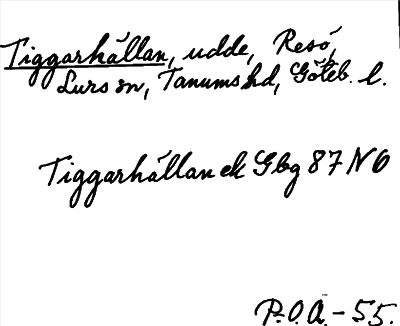 Tiggarhällan, udde, Resö,
Lurs sn, Tanums hd, Göteb. l.
Tiggarhällan ek Gbg 87 NO
P.O.Ä. - 55.